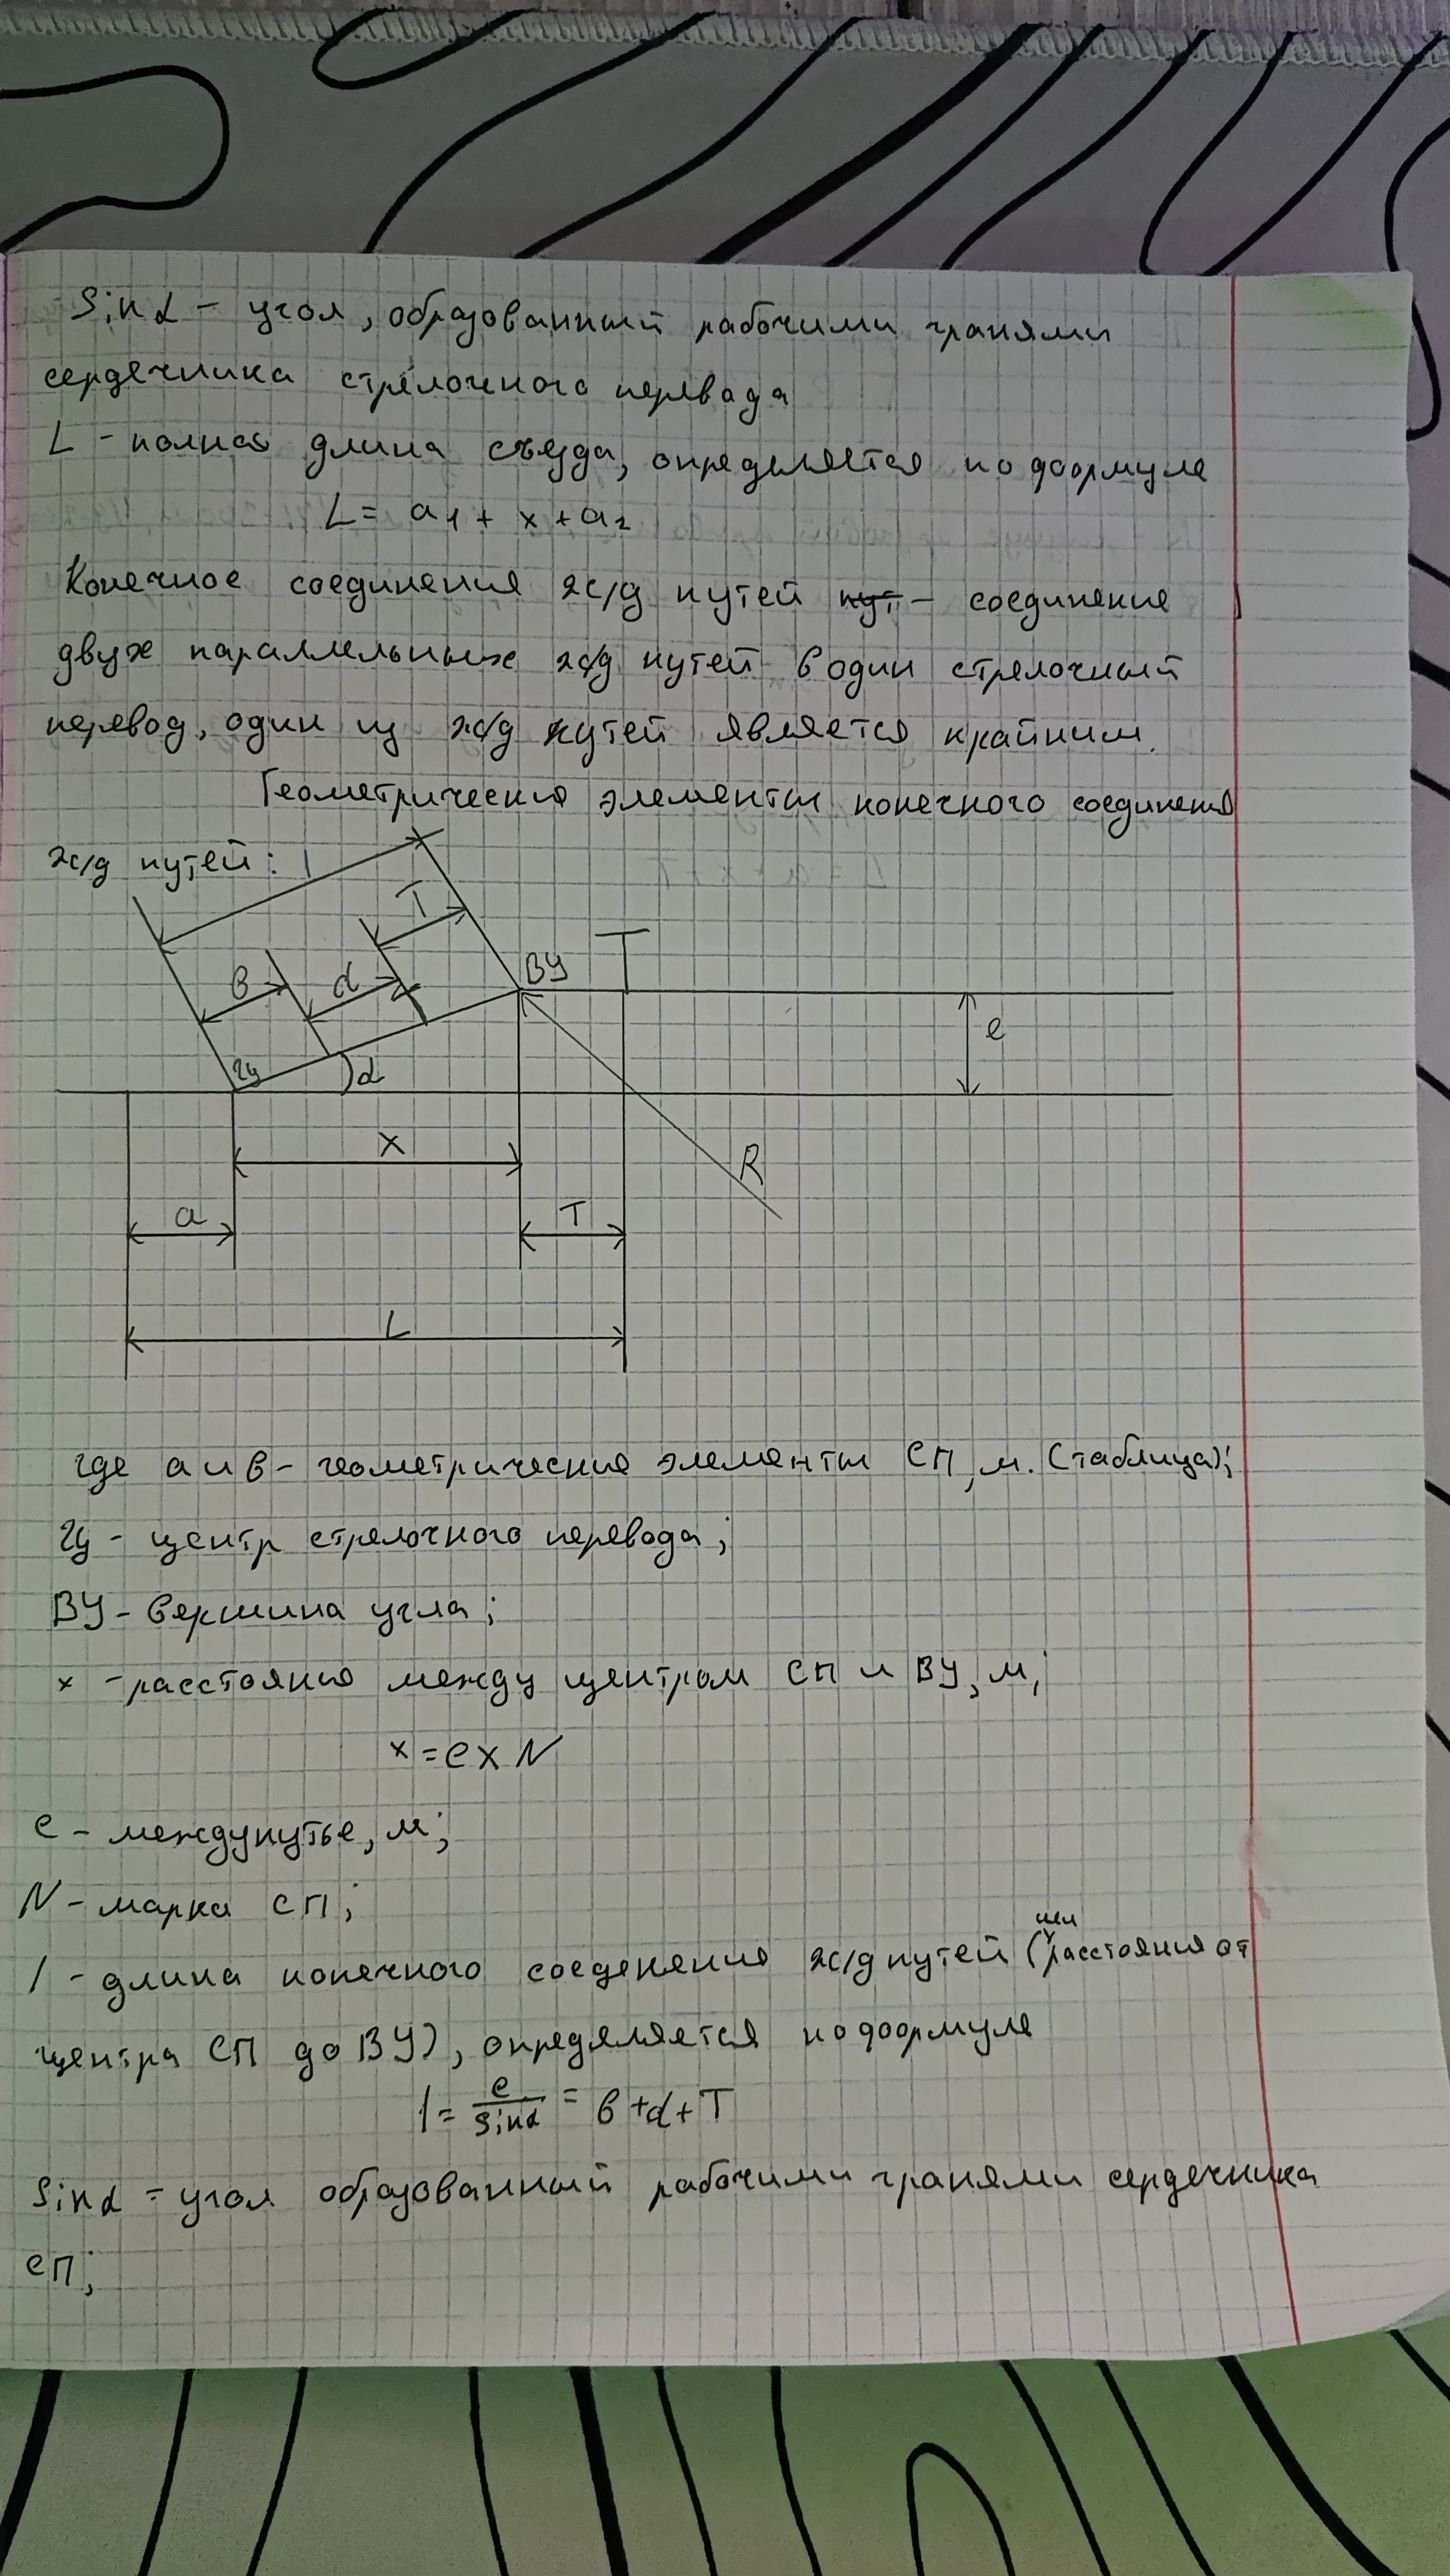 Sin α - угол, образованный рабочими гранями
сердечника стрелочного перевода
L - полная длина съезда, определяется по формуле
L = a₁ + x + a₂
Конечное соединения ж/д путей пут - соединение
двух параллельных ж/д путей в один стрелочный
перевод, один из ж/д путей является крайним.
Геометрические элементы конечного соединения
ж/д путей:
l
T
в
d
ВУ
e
ЦУ
α
x
R
a
T
L
где a и в - геометрические элементы СП, м. (таблица);
ЦУ - центр стрелочного перевода;
ВУ - вершина угла;
x - расстояние между центром СП и ВУ, м;
x = e x N
e - междупутье, м;
N - марка СП;
l - длина конечного соеденения ж/д путей (или расстояния от
центра СП до ВУ), определяется по формуле
l = e/sin α = в + d + T
Sin α = угол образованный рабочими гранями сердечника
СП;